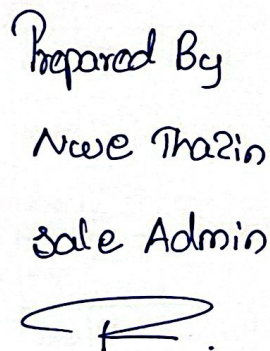 Prepared By
Nwe Thazin
Sale Admin